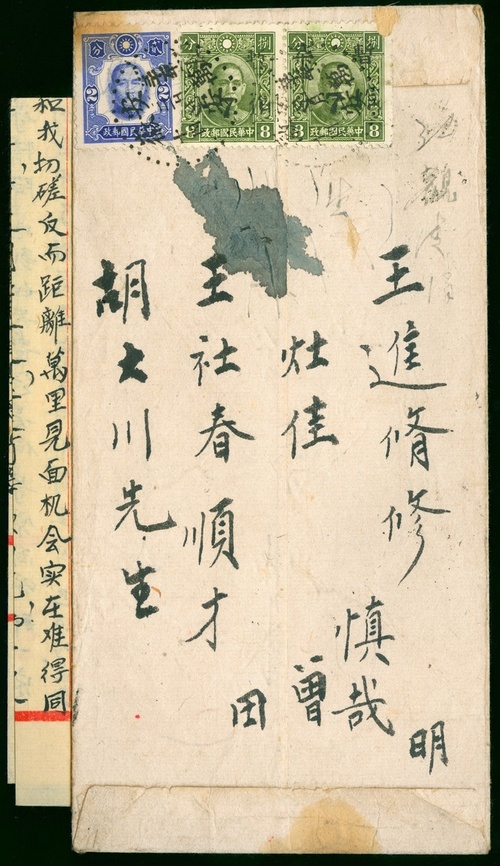 捌分
8 8
中華民國郵政
捌分
8 8
中華民國郵政
貳分
2 2
中華民國郵政
明
王進脩修
慎哉
灶佳 曾
王社春順才 田
胡大川先生
和我切磋反而距離萬里見面机会实在难得同